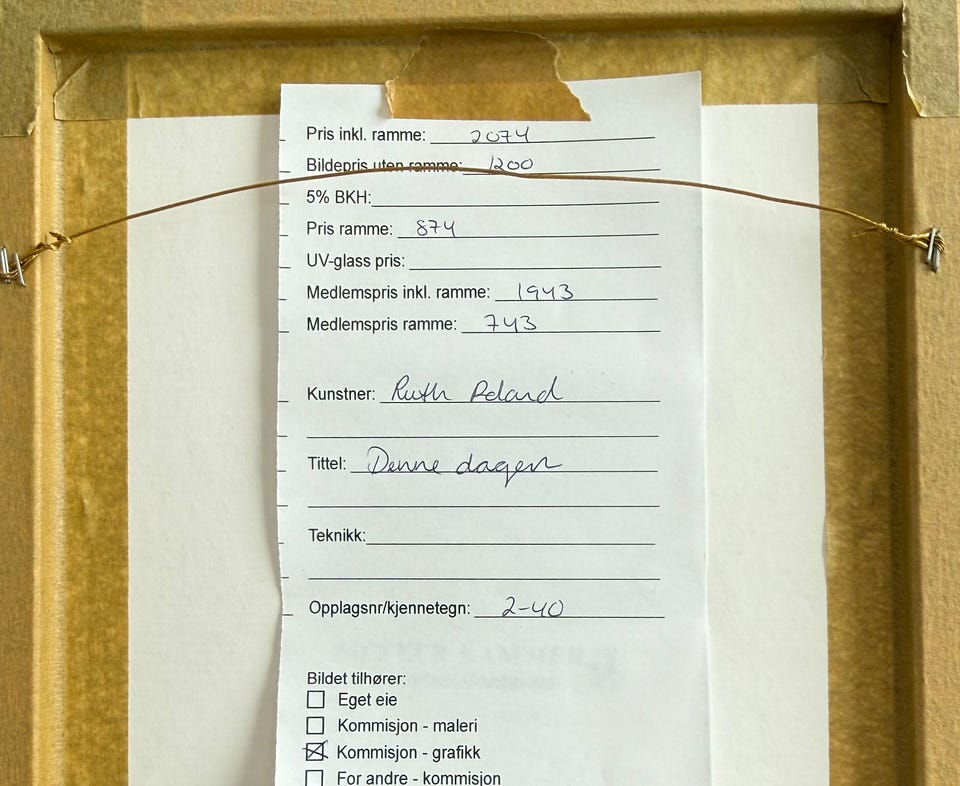 Pris inkl. ramme: 2074
Bildepris uten ramme: 1200
5% BKH:
Pris ramme: 874
UV-glass pris:
Medlemspris inkl. ramme: 1943
Medlemspris ramme: 743
Kunstner: Ruth
Tittel: Denne dagen
Teknikk:
Opplagsnr/kjennetegn: 2-40
Bildet tilhører:
Eget eie
Kommisjon - maleri
Kommisjon - grafikk
For andre - kommisjon